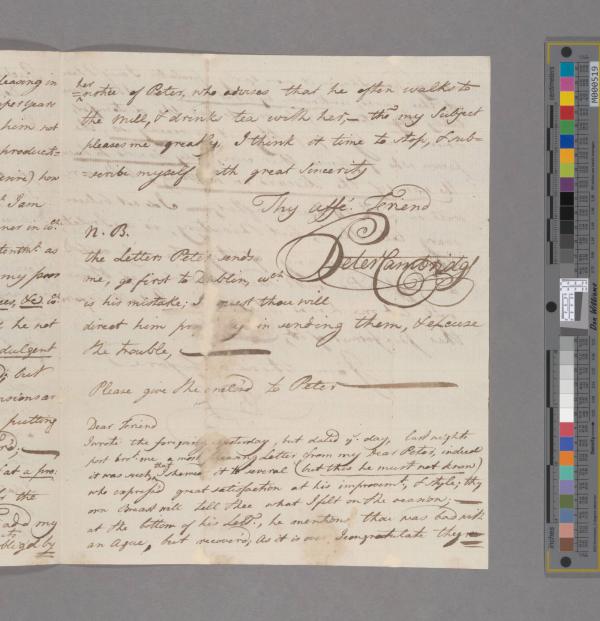 leasing in
her
notice of Peter, who advises that he often walks to
the Mill, & drinks tea with her, – tho' my Subject
pleases me greatly, I think it time to stop, & sub=
=scribe myself with great Sincerity
Thy affe. Friend
Peter Cambridge
N. B.
the Letters Peter sends
me, go first to Dublin, wch
is his mistake; I must thou will
direct him in sending them, & excuse
the trouble,
Please give the enclos'd to Peter
Dear Friend
I wrote the foregoing yesterday, but dated ys. day, last nights
post bro't me a most pleasing Letter from my Dear Peter, indeed
it was such, that I shewed it to several (but this he must not know)
who express'd great satisfaction at his improvemt. & style; thy
own Breast will tell thee what I felt on the reason; —
at the bottom of his Lettr., he mentions thou was bad with
an Ague, but recover'd, As it is over, I congratulate thy
him not
product=
how
I am
tent as
my poor
he not
dulgent
but
putting
at a pro:
the
my
by
M000519
centimeters
inches
Don Williams